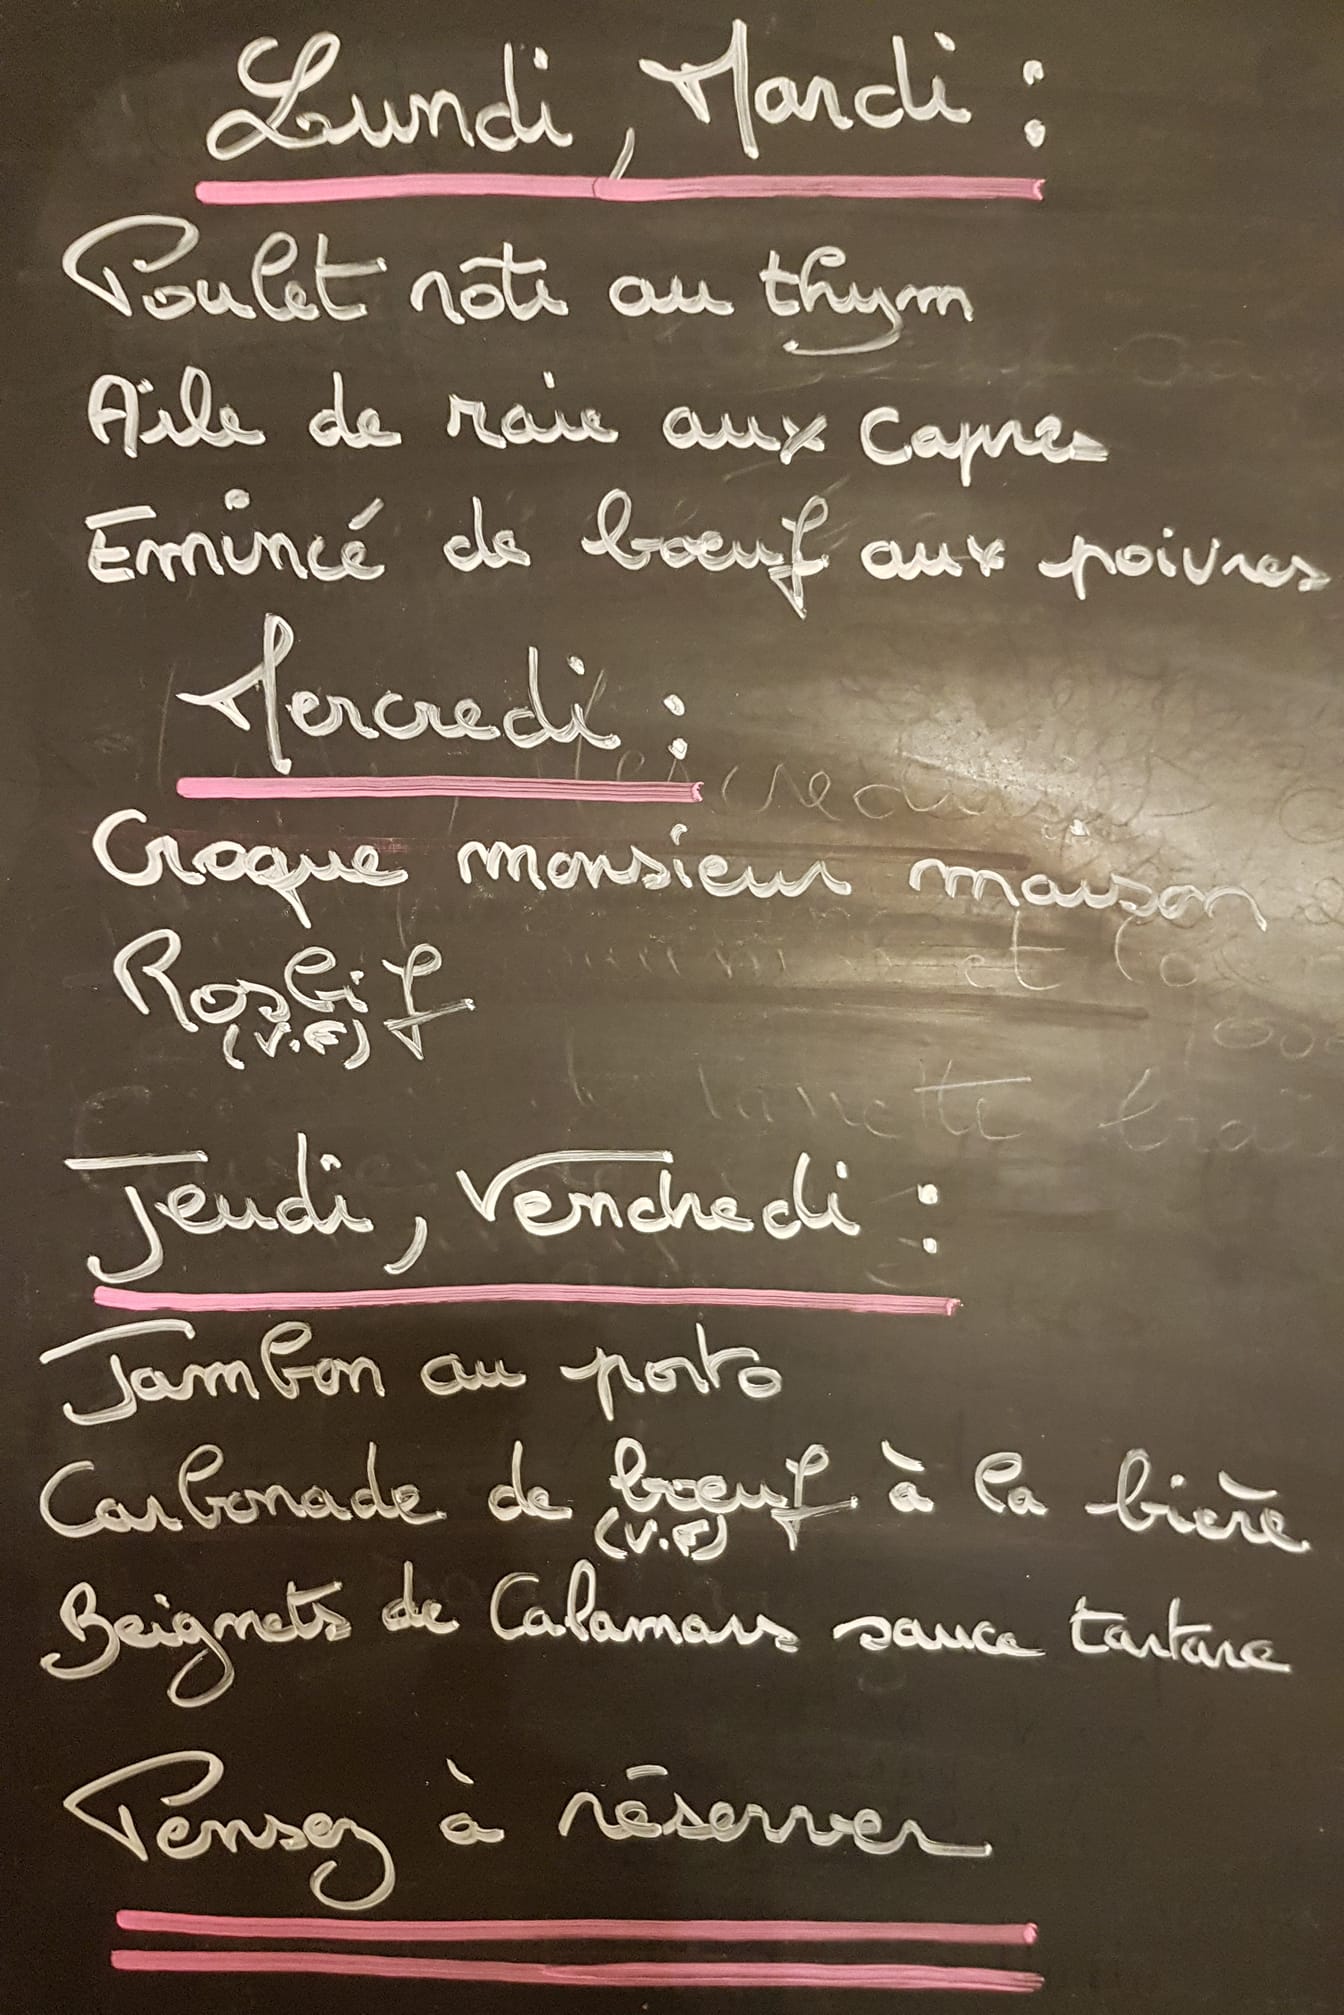 Lundi, Mardi :
Poulet rôti au thym
Aile de raie aux capres
Emincé de bœuf aux poivres
Mercredi :
Croque monsieur maison
Rosbif
(V.F)
Jeudi, Vendredi :
Jambon au porto
Carbonade de bœuf à la bière
(V.F)
Beignets de Calamars sauce tartare
Pensez à réserver